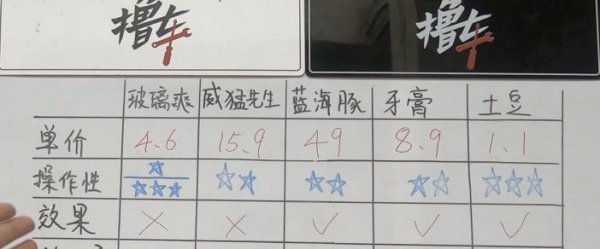 撸车
撸车
玻璃爽 威猛先生 蓝海豚 牙膏 土豆
单价 4.6 15.9 49 8.9 1.1
操作性
效果 × × √ √ √